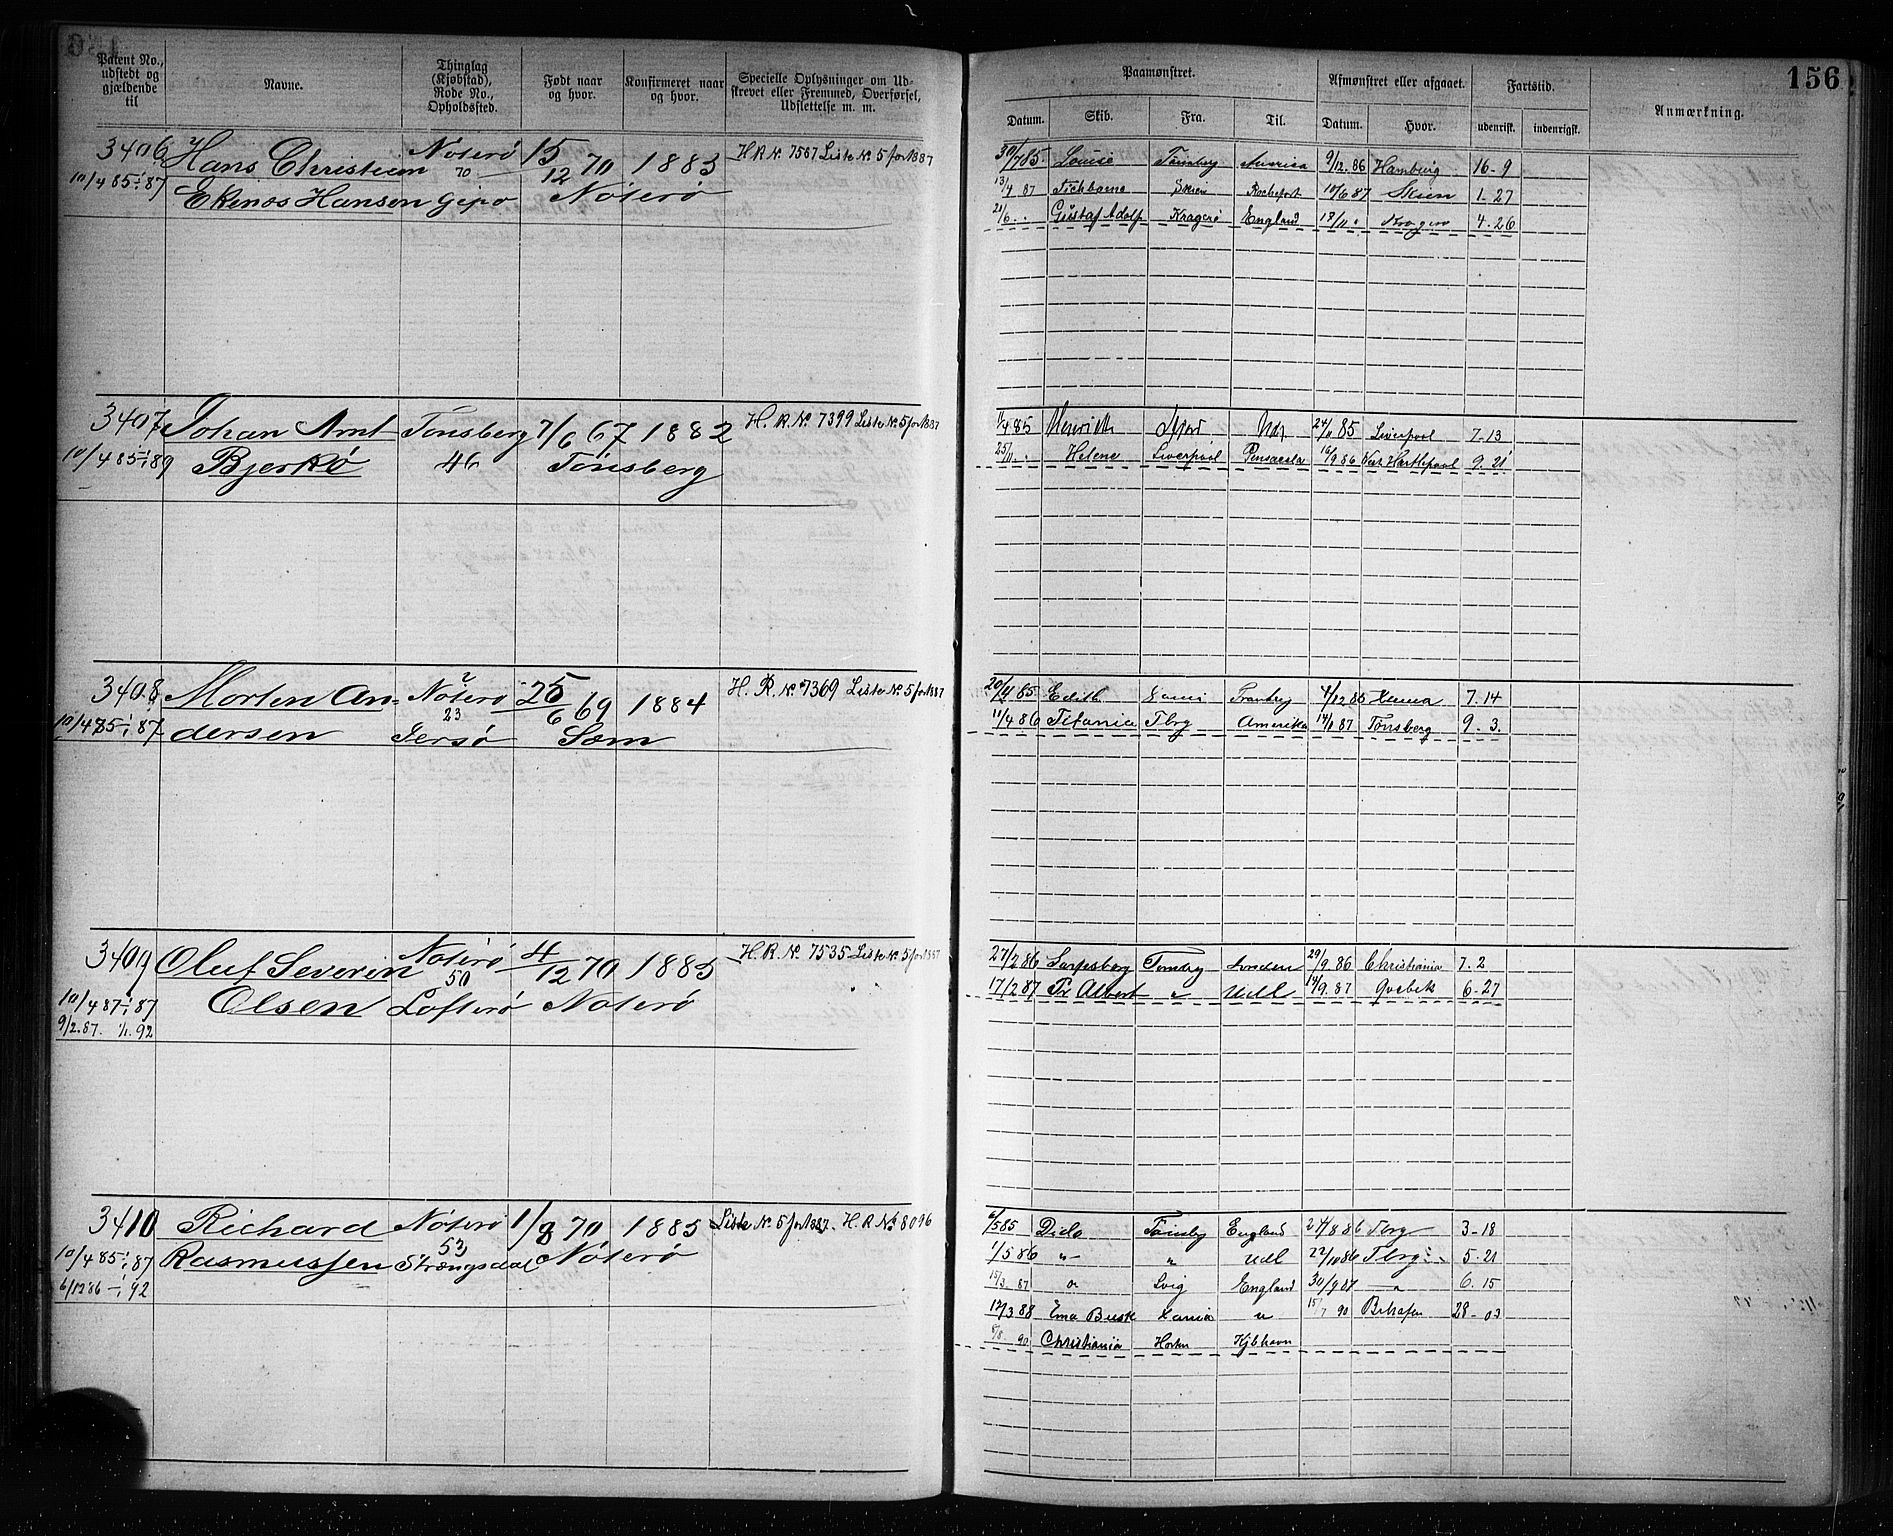 156
Patent No., udstedt og gjældende til
Navne.
Thinglag (Kjøbstad), Rode No., Opholdssted.
Født naar og hvor.
Konfirmeret naar og hvor.
Specielle Oplysninger om Udskrevet eller Fremmed, Overførsel, Udslettelse m. m.
Paamønstret.
Afmønstret eller afgaaet.
Fartstid.
Anmærkning.
Datum. Skib. Fra. Til. Datum. Hvor. udenrisk. indenrigsk.
3406 Hans Christian Nøterø 15/12 70 1883 H R N. 7567 Liste No 5 for 1887
10/4 85 - 1/1 87 Ekenos Hansen 70 Gipø Nøterø
30/7 85 Louise Tønsberg America 9/12 86 Hamburg 16 - 9
13/4 87 Skien Rochefort 10/6 87 Skien 1 - 27
21/6 " Gustaf Adolf Kragerø England 18/11 " Kragerø 4 - 26
3407 Johan Arnt Tønsberg 7/6 67 1882 H. R. No. 7399 Liste No 5 for 1887
10/4 85 - 1/1 89 Bjerkø 46 Tønsberg
11/4 85 24/11 85 Liverpool 7 - 13
25/11 " Helene Liverpool Pensacola 16/9 86 West Hartlepool 9 - 21
3408 Morten An- Nøterø 25/6 69 1884 H. R. No. 7369 Liste No 5 for 1887
10/4 85 - 1/1 87 dersen 23 Jersø Sæm
20/4 85 Edith 4/12 85 7 - 14
11/4 86 Titania Tbrg Amerika 14/1 87 Tønsberg 9 - 3
3409 Oluf Severin Nøterø 4/12 70 1885 H. R. No. 7535 Liste No 5 for 1887
10/4 87 - 1/1 87 Olsen 50 Nøterø
9/2. 87. 1/1. 92
27/2 86 Sarpsborg Tønsbrg London 29/9 86 Christiania 7 - 2
17/2 87 Pr Albert " Udl 14/9. 87 6 - 27
3410 Richard Nøterø 1/8 70 1885 Liste No 5 for 1887. H. R No 8096
10/4 85 - 1/1 87 Rasmussen 53 Strængsdal Nøterø
6/12 86 - 1/1 92
6/5 85 Dido Tønsbg England 24/8 86 Tbrg 3 - 18
1/5 86 " " Udl 22/10 86 Tbrg 5 - 21
15/3. 87 " Lvig England 30/9 87 " 6. 15
12/3 88 Ema Busk Xania " 15/7 90 Bchafen 28 - 03
8/8 90 Christiania Horten Kjbhavn